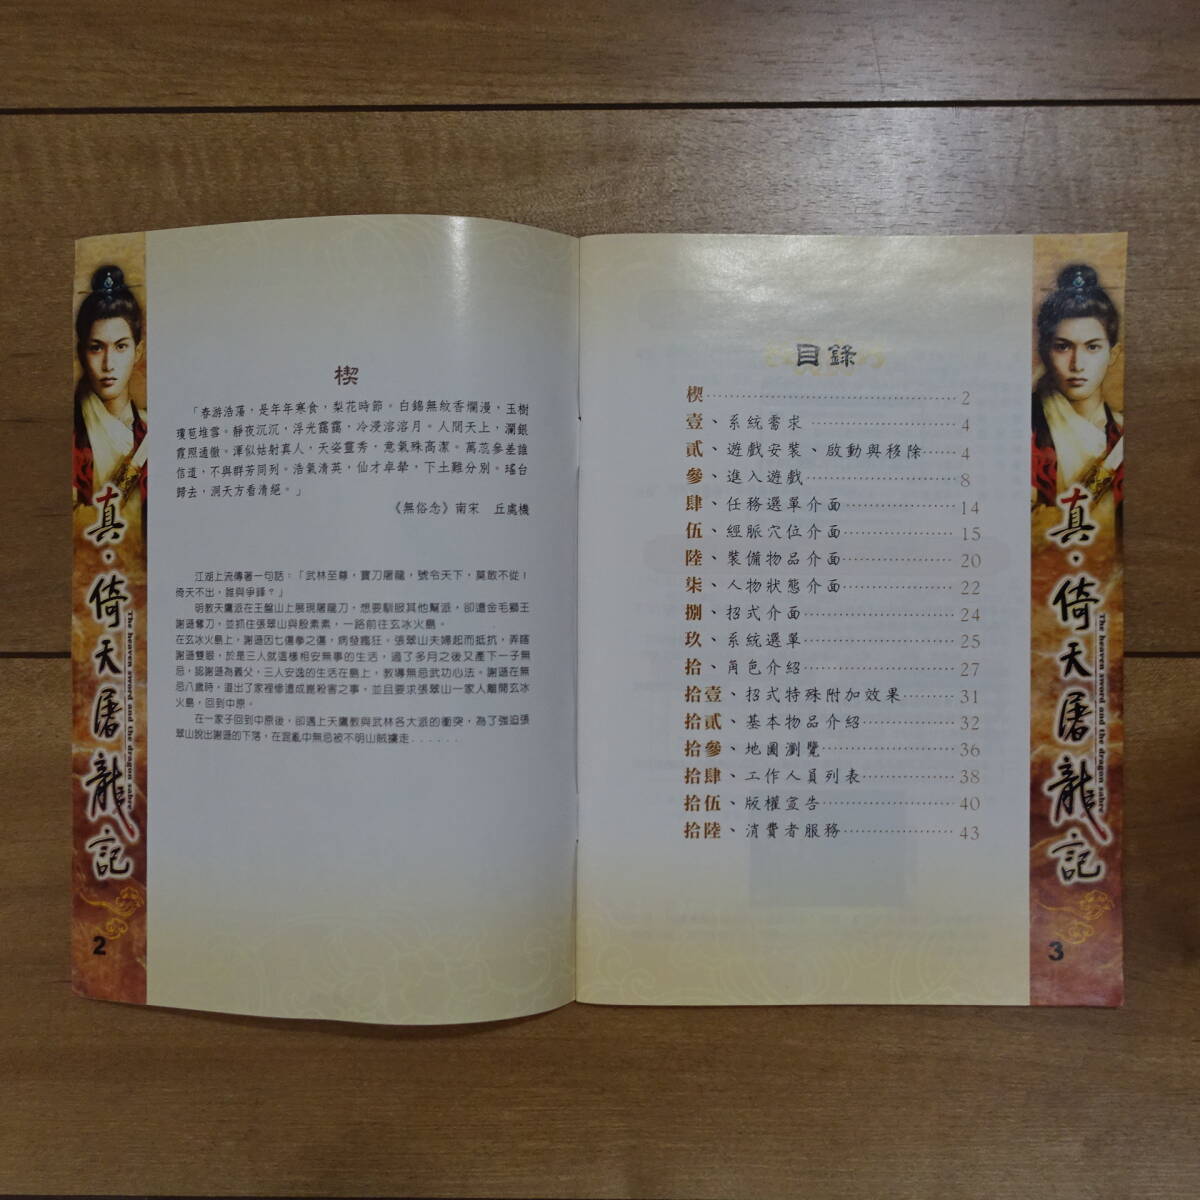 楔
「春游浩蕩，是年年寒食，梨花時節。白錦無紋香爛漫，玉樹
瓊苞堆雪。靜夜沉沉，浮光靄靄，冷浸溶溶月。人間天上，瀾銀
霞照通徹。渾似姑射真人，天姿靈秀，意氣殊高潔。萬蕊參差誰
信道，不與群芳同列。浩氣清英，仙才卓犖，下土難分別。瑤台
歸去，洞天方看清絕。」
《無俗念》南宋　丘處機
江湖上流傳著一句話：「武林至尊，寶刀屠龍，號令天下，莫敢不從！
倚天不出，誰與爭鋒？」
明教天鷹派在王盤山上展現屠龍刀，想要馴服其他幫派，卻遭金毛獅王
謝遜奪刀，並抓住張翠山與殷素素，一路前往玄冰火島。
在玄冰火島上，謝遜因七傷拳之傷，病發瘋狂。張翠山夫婦起而抵抗，弄瞎
謝遜雙眼，於是三人就這樣相安無事的生活，過了多月之後又產下一子無
忌，認謝遜為義父，三人安逸的生活在島上，教導無忌武功心法。謝遜在無
忌八歲時，道出了家裡慘遭成崑殺害之事，並且要求張翠山一家人離開玄冰
火島，回到中原。
在一家子回到中原後，卻遇上天鷹教與武林各大派的衝突，為了強迫張
翠山說出謝遜的下落，在混亂中無忌被不明山賊擄走......
真·倚天屠龍記
The heaven sword and the dragon sabre
2
目錄
楔……………………………2
壹、系統需求……………4
貳、遊戲安裝、啟動與移除……4
參、進入遊戲……………8
肆、任務選單介面…………14
伍、經脈穴位介面…………15
陸、裝備物品介面…………20
柒、人物狀態介面…………22
捌、招式介面……………24
玖、系統選單……………25
拾、角色介紹……………27
拾壹、招式特殊附加效果……31
拾貳、基本物品介紹………32
拾參、地圖瀏覽…………36
拾肆、工作人員列表………38
拾伍、版權宣告…………40
拾陸、消費者服務…………43
真·倚天屠龍記
The heaven sword and the dragon sabre
3